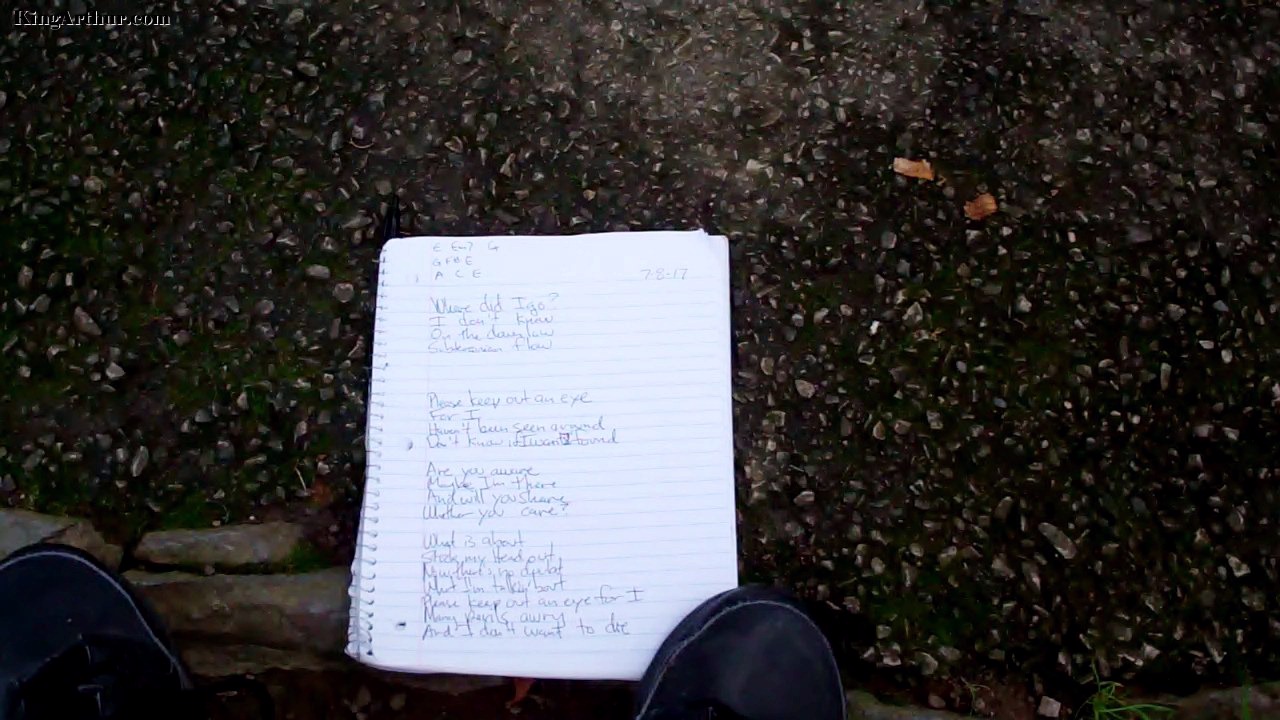 KingArthur.com
E Em7 G
G F# E
A C E
7-8-17
Where did I go?
I don't know
On the down low
Subterranean flow
Please keep out an eye
For I
Haven't been seen around
Don't know if I want found
Are you aware
Maybe I'm there
And will you share
Whether you care?
What is about
Stick my head out
Now there's no doubt
What I'm talkin bout
Please keep out an eye for I
Many perils awry
And I don't want to die